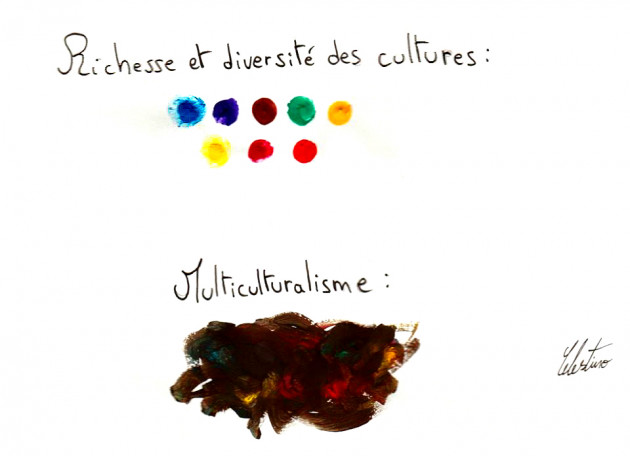 Richesse et diversité des cultures :
Multiculturalisme :